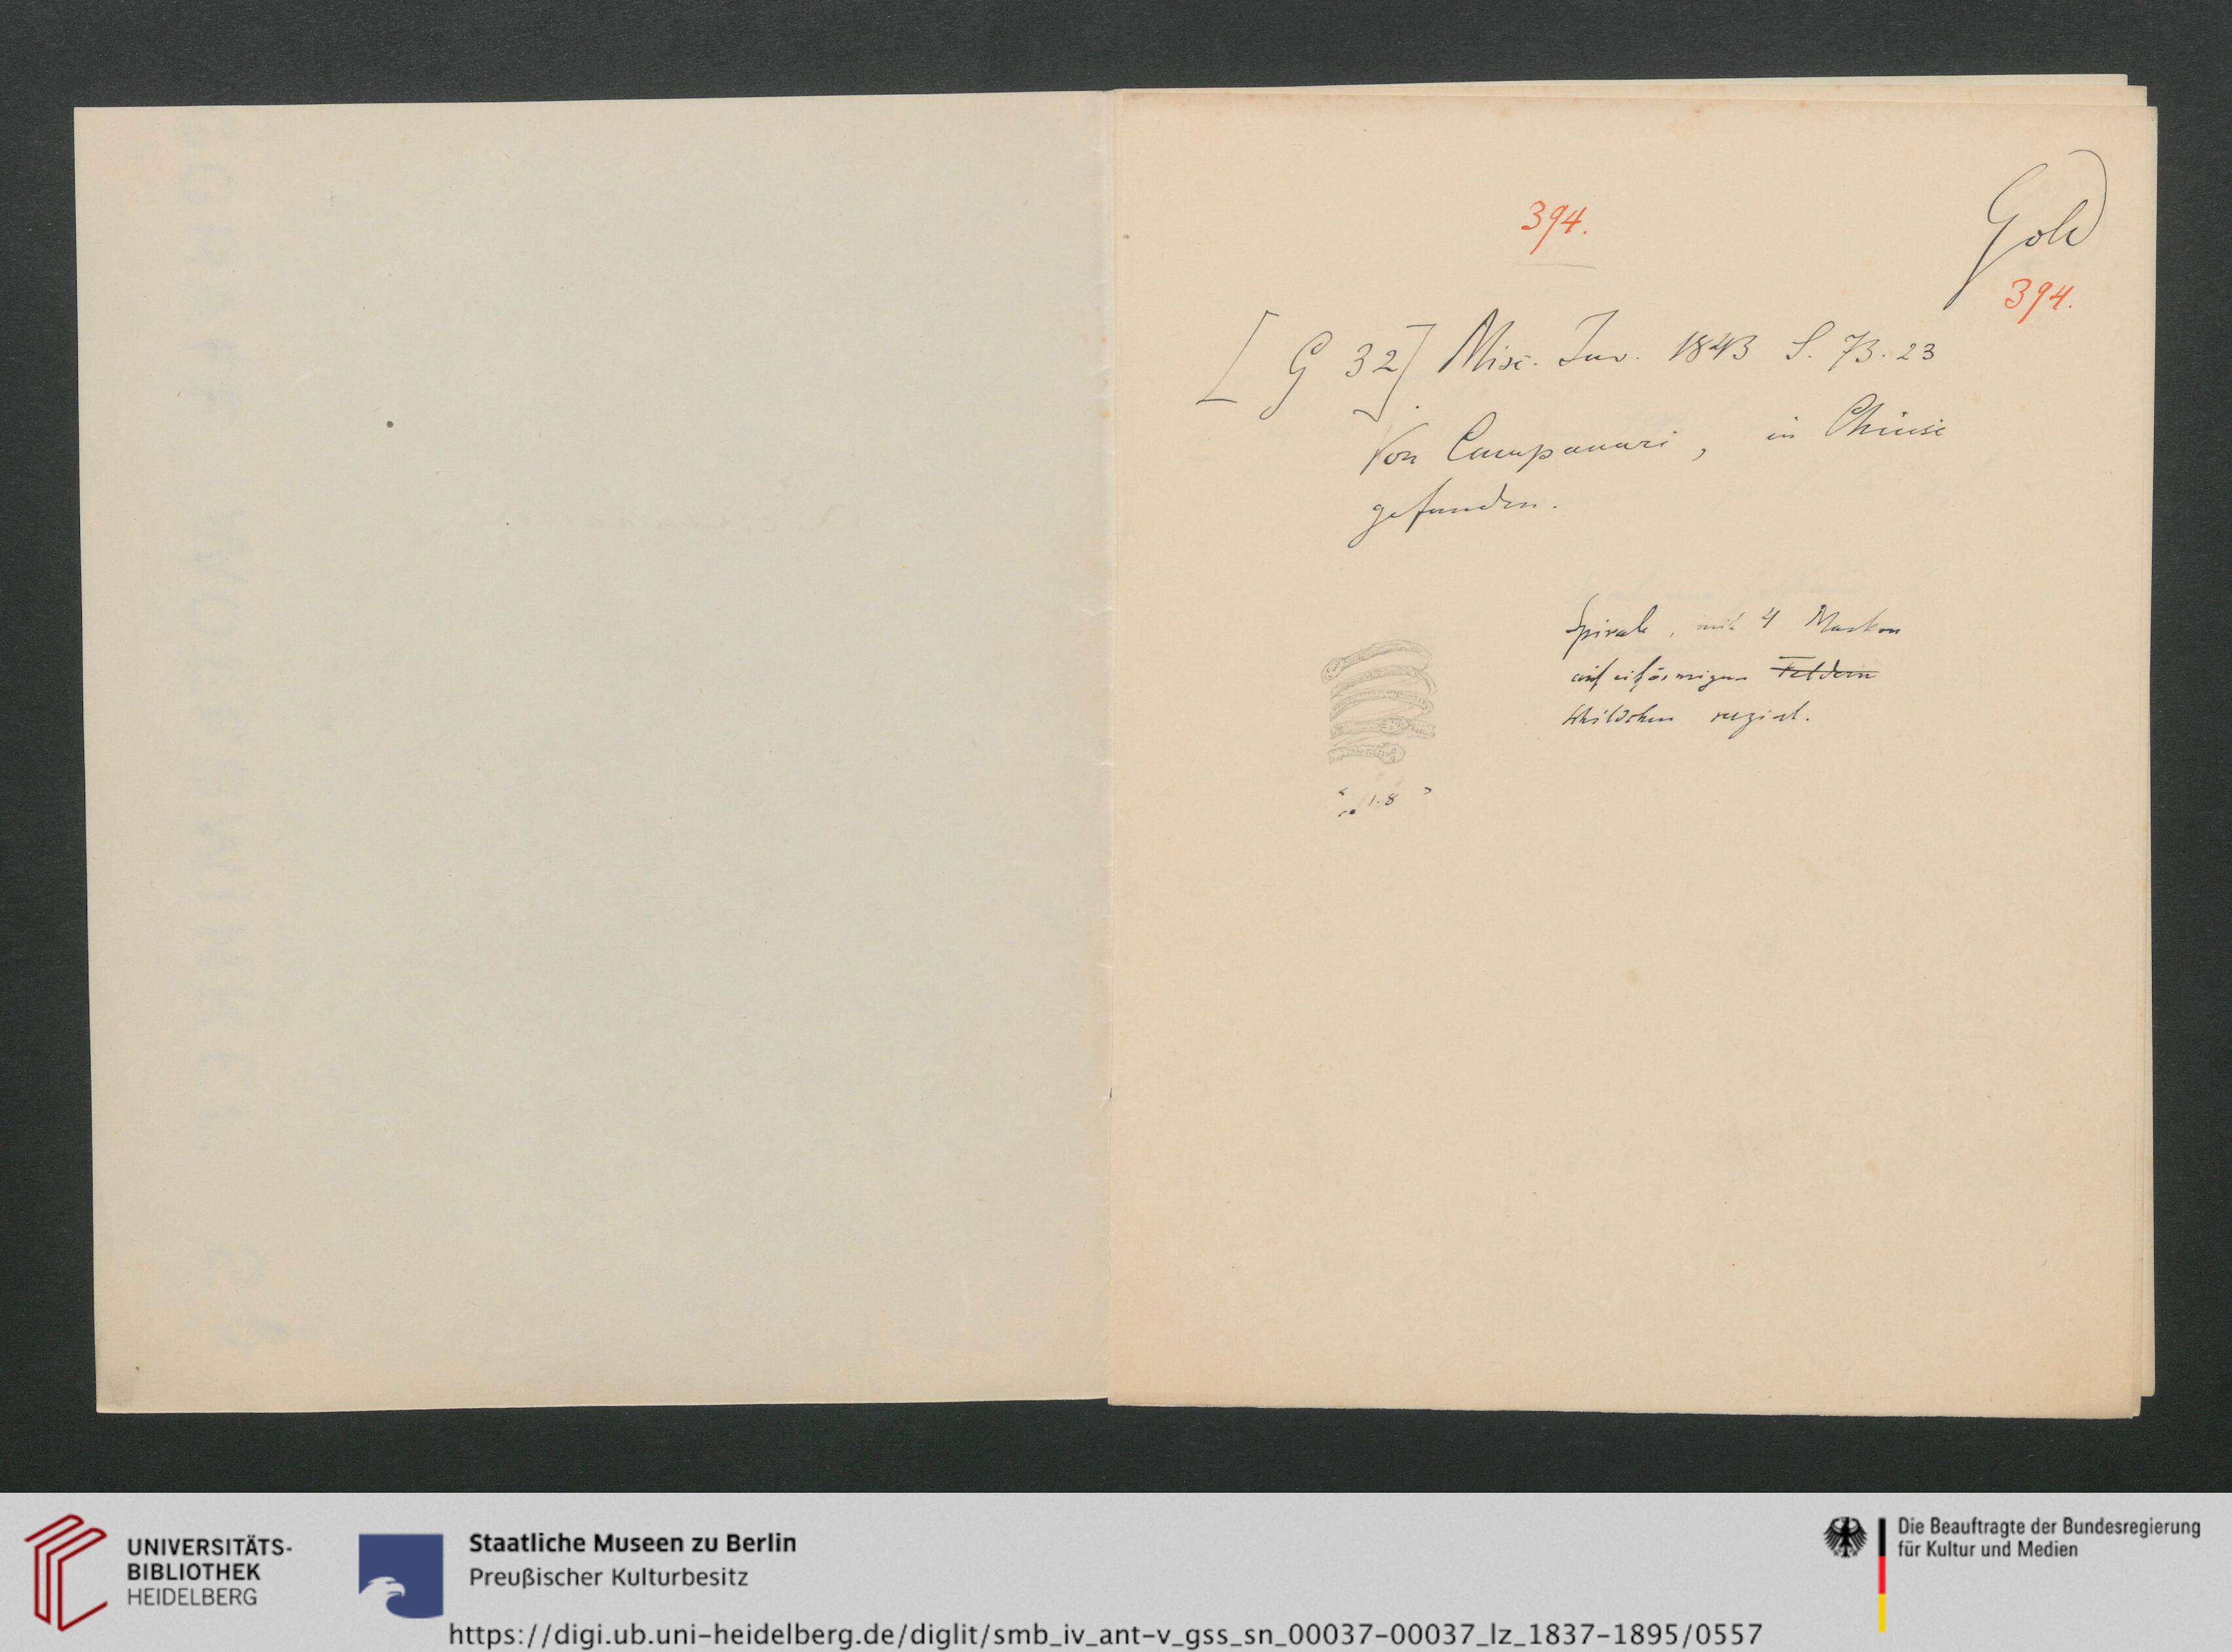 394.
Gold
394.
[G 32] Misc. Inv. 1843 S. 73. 23
Von Campanari, in Chiusi
gefunden.
Spirale, mit 4 Masken
auf eiförmigen Feldern
Schildchen verziert.
1.8
UNIVERSITÄTS-
BIBLIOTHEK
HEIDELBERG
Staatliche Museen zu Berlin
Preußischer Kulturbesitz
Die Beauftragte der Bundesregierung
für Kultur und Medien
https://digi.ub.uni-heidelberg.de/diglit/smb_iv_ant-v_gss_sn_00037-00037_lz_1837-1895/0557